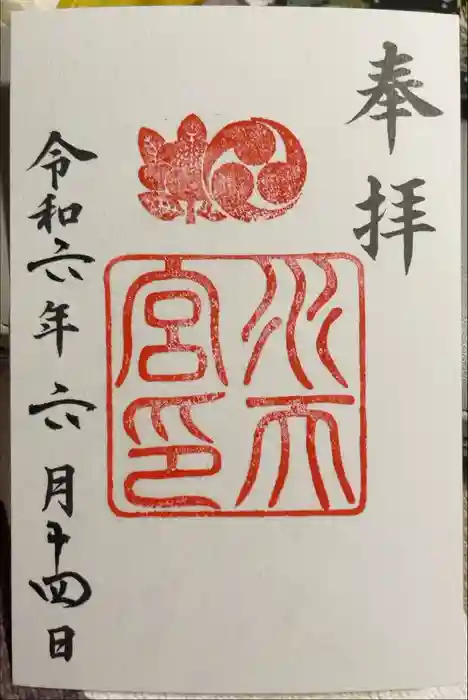 奉拝
水天
宮印
令和六年六月十四日